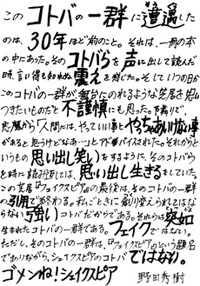 このコトバの一群に遭遇した
のは、30年ほど前のこと。それは、一冊の本
の中にあった。そのコトバらを声に出して読んだ
時、言い得も知れぬ震えを感じた。そしていつの日か
このコトバの一群が舞台にのれるような芝居を
つきたいものだと不謹慎にも思った。
「人間には、やっていい事とやっちゃあいけない事
があると
いうもの思い出し笑いをするように、そのコトバら
を時に思い出し生きをしていた。
この芝居『フェイクスピア』の最後は、そのコトバの一群
の引用で終わる。私ごときに創り変えられてはな
らない強いコトバだからである。それらは突如
生まれたコトバの一群である。フェイクではない。
ただし、そのコトバの一群は、『フェイクスピア』という題名
でありながら、シェイクスピアのコトバではない。
ゴメンね!シェイクスピア
野田秀樹